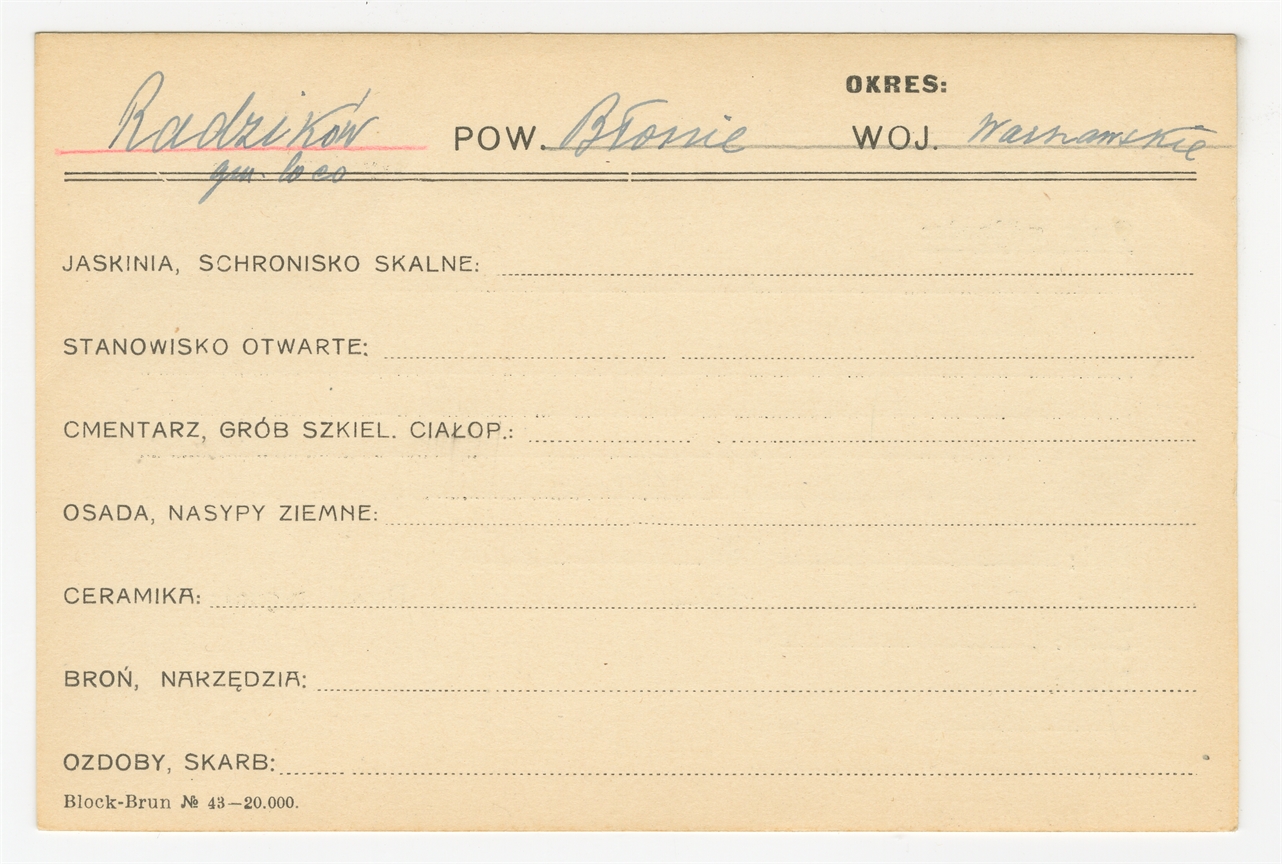 OKRES:
Radzików POW. Błonie WOJ. Warszawskie
gm. loco
JASKINIA, SCHRONISKO SKALNE:
STANOWISKO OTWARTE:
CMENTARZ, GRÓB SZKIEL. CIAŁOP.:
OSADA, NASYPY ZIEMNE:
CERAMIKA:
BROŃ, NARZĘDZIA:
OZDOBY, SKARB:
Block-Brun № 43—20.000.